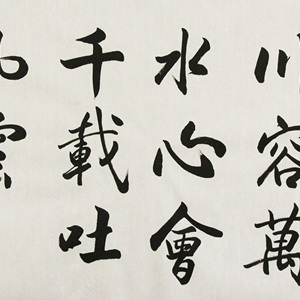 川容萬
水心會
千載吐
雲